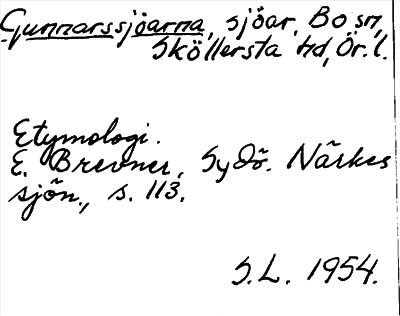 Gunnarssjöarna, sjöar, Bo sn,
Sköllersta hd, Ör. l.
Etymologi.
E. Brevner, Sydö. Närkes
sjön., s. 113.
S.L. 1954.